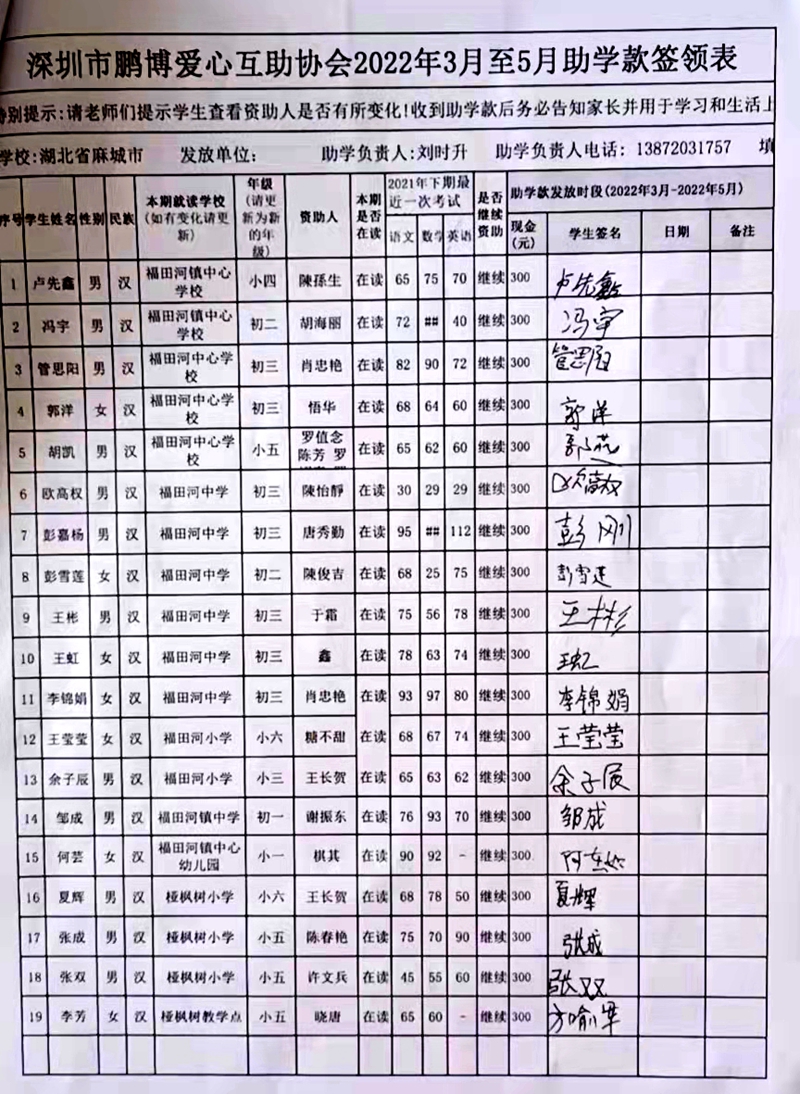 深圳市鹏博爱心互助协会2022年3月至5月助学款签领表
特别提示:请老师们提示学生查看资助人是否有所变化!收到助学款后务必告知家长并用于学习和生活上
学校:湖北省麻城市 发放单位: 助学负责人:刘时升 助学负责人电话: 13872031757 填
序号 学生姓名 性别 民族 本期就读学校(如有变化请更新) 年级(请更新为新的年级) 资助人 本期是否在读 2021年下期最近一次考试 语文 数学 英语 是否继续资助 助学款发放时段(2022年3月-2022年5月) 现金(元) 学生签名 日期 备注
1 卢先鑫 男 汉 福田河镇中心学校 小四 陳孫生 在读 65 75 70 继续 300 卢先鑫
2 冯宇 男 汉 福田河镇中心学校 初二 胡海丽 在读 72 ## 40 继续 300 冯宇
3 管思阳 男 汉 福田河中心学校 初三 肖忠艳 在读 82 90 72 继续 300 管思阳
4 郭洋 女 汉 福田河中心学校 初三 悟华 在读 68 64 60 继续 300 郭洋
5 胡凯 男 汉 福田河中心学校 小五 罗值念 陈芳 罗 在读 65 62 60 继续 300
6 欧高权 男 汉 福田河中学 初三 陳怡靜 在读 30 29 29 继续 300 欧高权
7 彭嘉杨 男 汉 福田河中学 初三 唐秀勤 在读 95 ## 112 继续 300 彭刚
8 彭雪莲 女 汉 福田河中学 初二 陳俊吉 在读 68 25 75 继续 300 彭雪莲
9 王彬 男 汉 福田河中学 初三 于霜 在读 75 56 78 继续 300 王彬
10 王虹 女 汉 福田河中学 初三 鑫 在读 78 63 74 继续 300 王虹
11 李锦娟 女 汉 福田河中学 初三 肖忠艳 在读 93 97 80 继续 300 李锦娟
12 王莹莹 女 汉 福田河小学 小六 糖不甜 在读 68 67 74 继续 300 王莹莹
13 余子辰 男 汉 福田河小学 小三 王长贺 在读 65 63 62 继续 300 余子辰
14 邹成 男 汉 福田河镇中学 初一 谢振东 在读 76 93 70 继续 300 邹成
15 何芸 女 汉 福田河镇中心幼儿园 小一 棋其 在读 90 92 - 继续 300
16 夏辉 男 汉 桠枫树小学 小六 王长贺 在读 68 78 50 继续 300 夏辉
17 张成 男 汉 桠枫树小学 小五 陈春艳 在读 75 70 90 继续 300 张成
18 张双 男 汉 桠枫树小学 小五 许文兵 在读 45 55 60 继续 300 张双
19 李芳 女 汉 桠枫树教学点 小五 晓唐 在读 65 60 - 继续 300